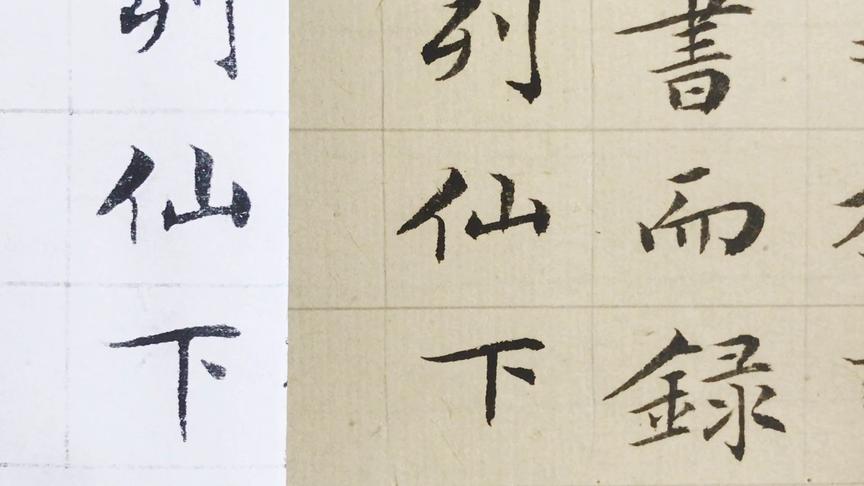 書而録
列仙下
列仙下